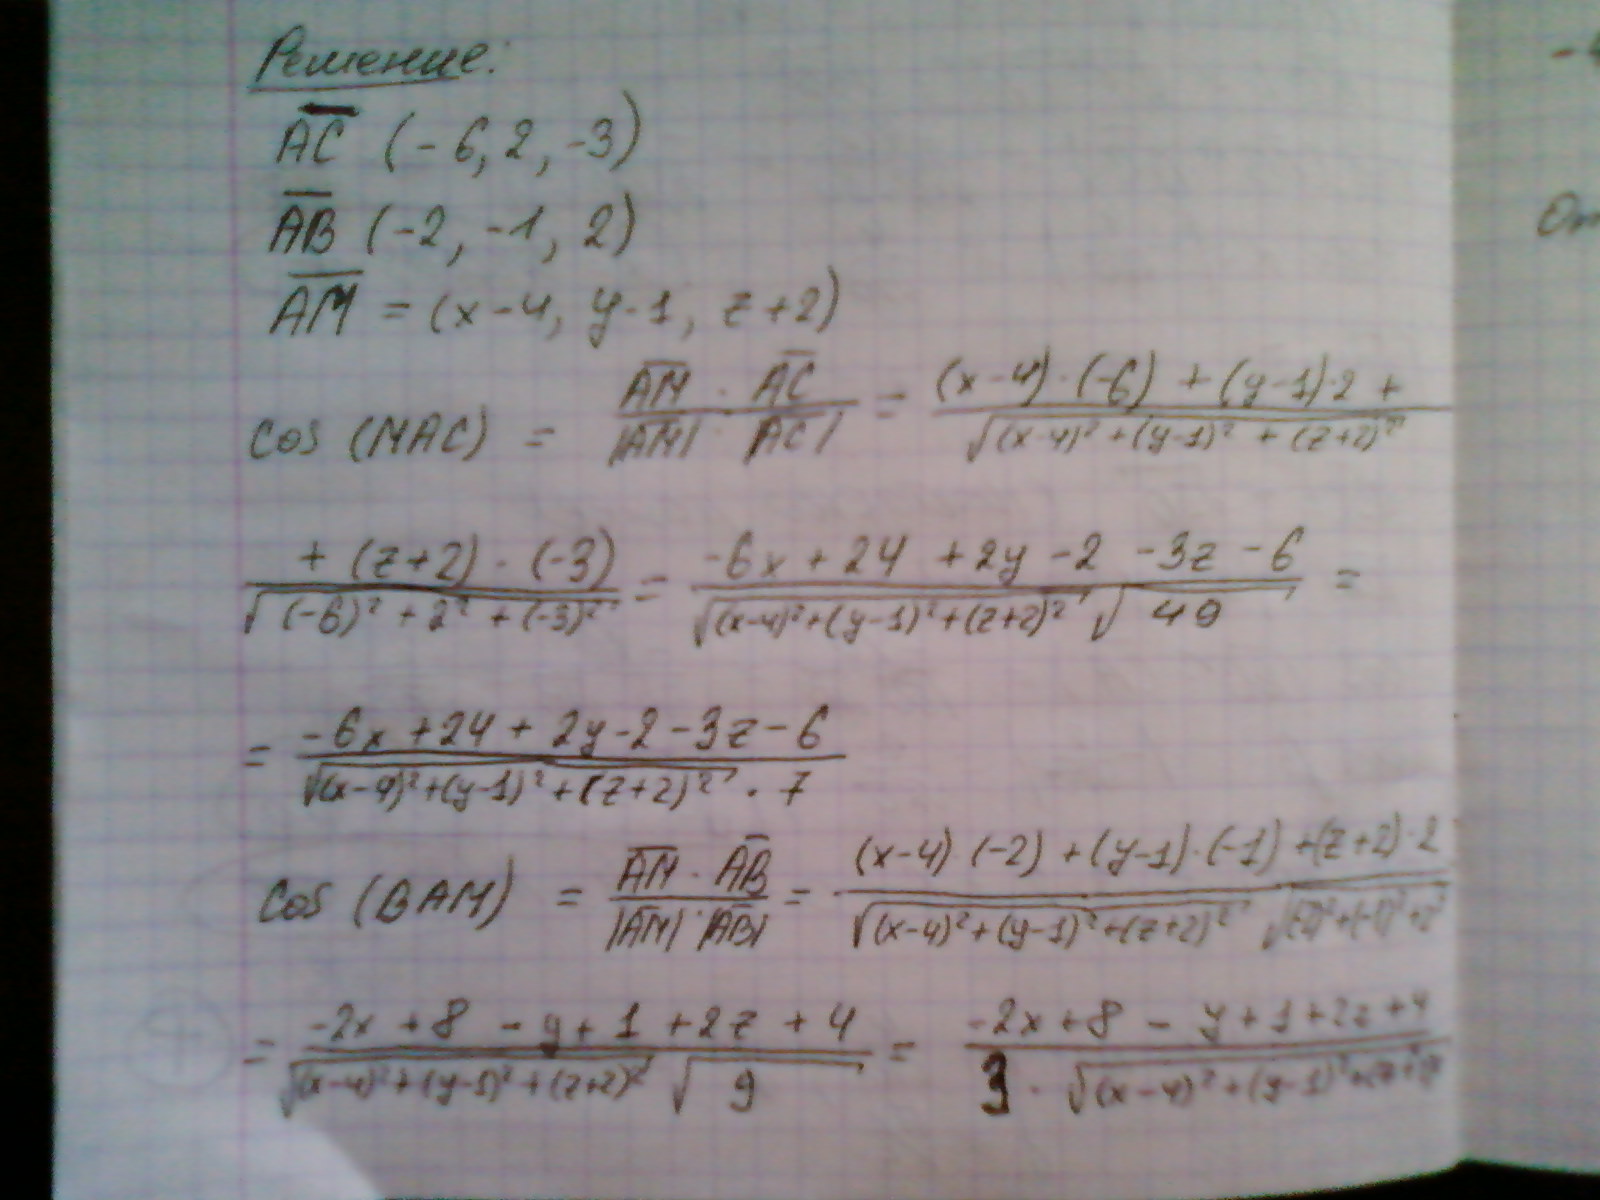 Решение:
AC (-6, 2, -3)
AB (-2, -1, 2)
AM = (x-4, y-1, z+2)
cos (MAC) = AM · AC / |AM| · |AC| = (x-4)·(-6) + (y-1)·2 + / √(x-4)² + (y-1)² + (z+2)²
+ (z+2)·(-3) / √(-6)² + 2² + (-3)² = -6x + 24 + 2y - 2 - 3z - 6 / √(x-4)² + (y-1)² + (z+2)² √49 =
= -6x + 24 + 2y - 2 - 3z - 6 / √(x-4)² + (y-1)² + (z+2)² · 7
cos (BAM) = AM · AB / |AM| · |AB| = (x-4)·(-2) + (y-1)·(-1) + (z+2)·2 / √(x-4)² + (y-1)² + (z+2)² √(-2)² + (-1)² + 2²
= -2x + 8 - y + 1 + 2z + 4 / √(x-4)² + (y-1)² + (z+2)² √9 = -2x + 8 - y + 1 + 2z + 4 / 3 · √(x-4)² + (y-1)² + (z+2)²